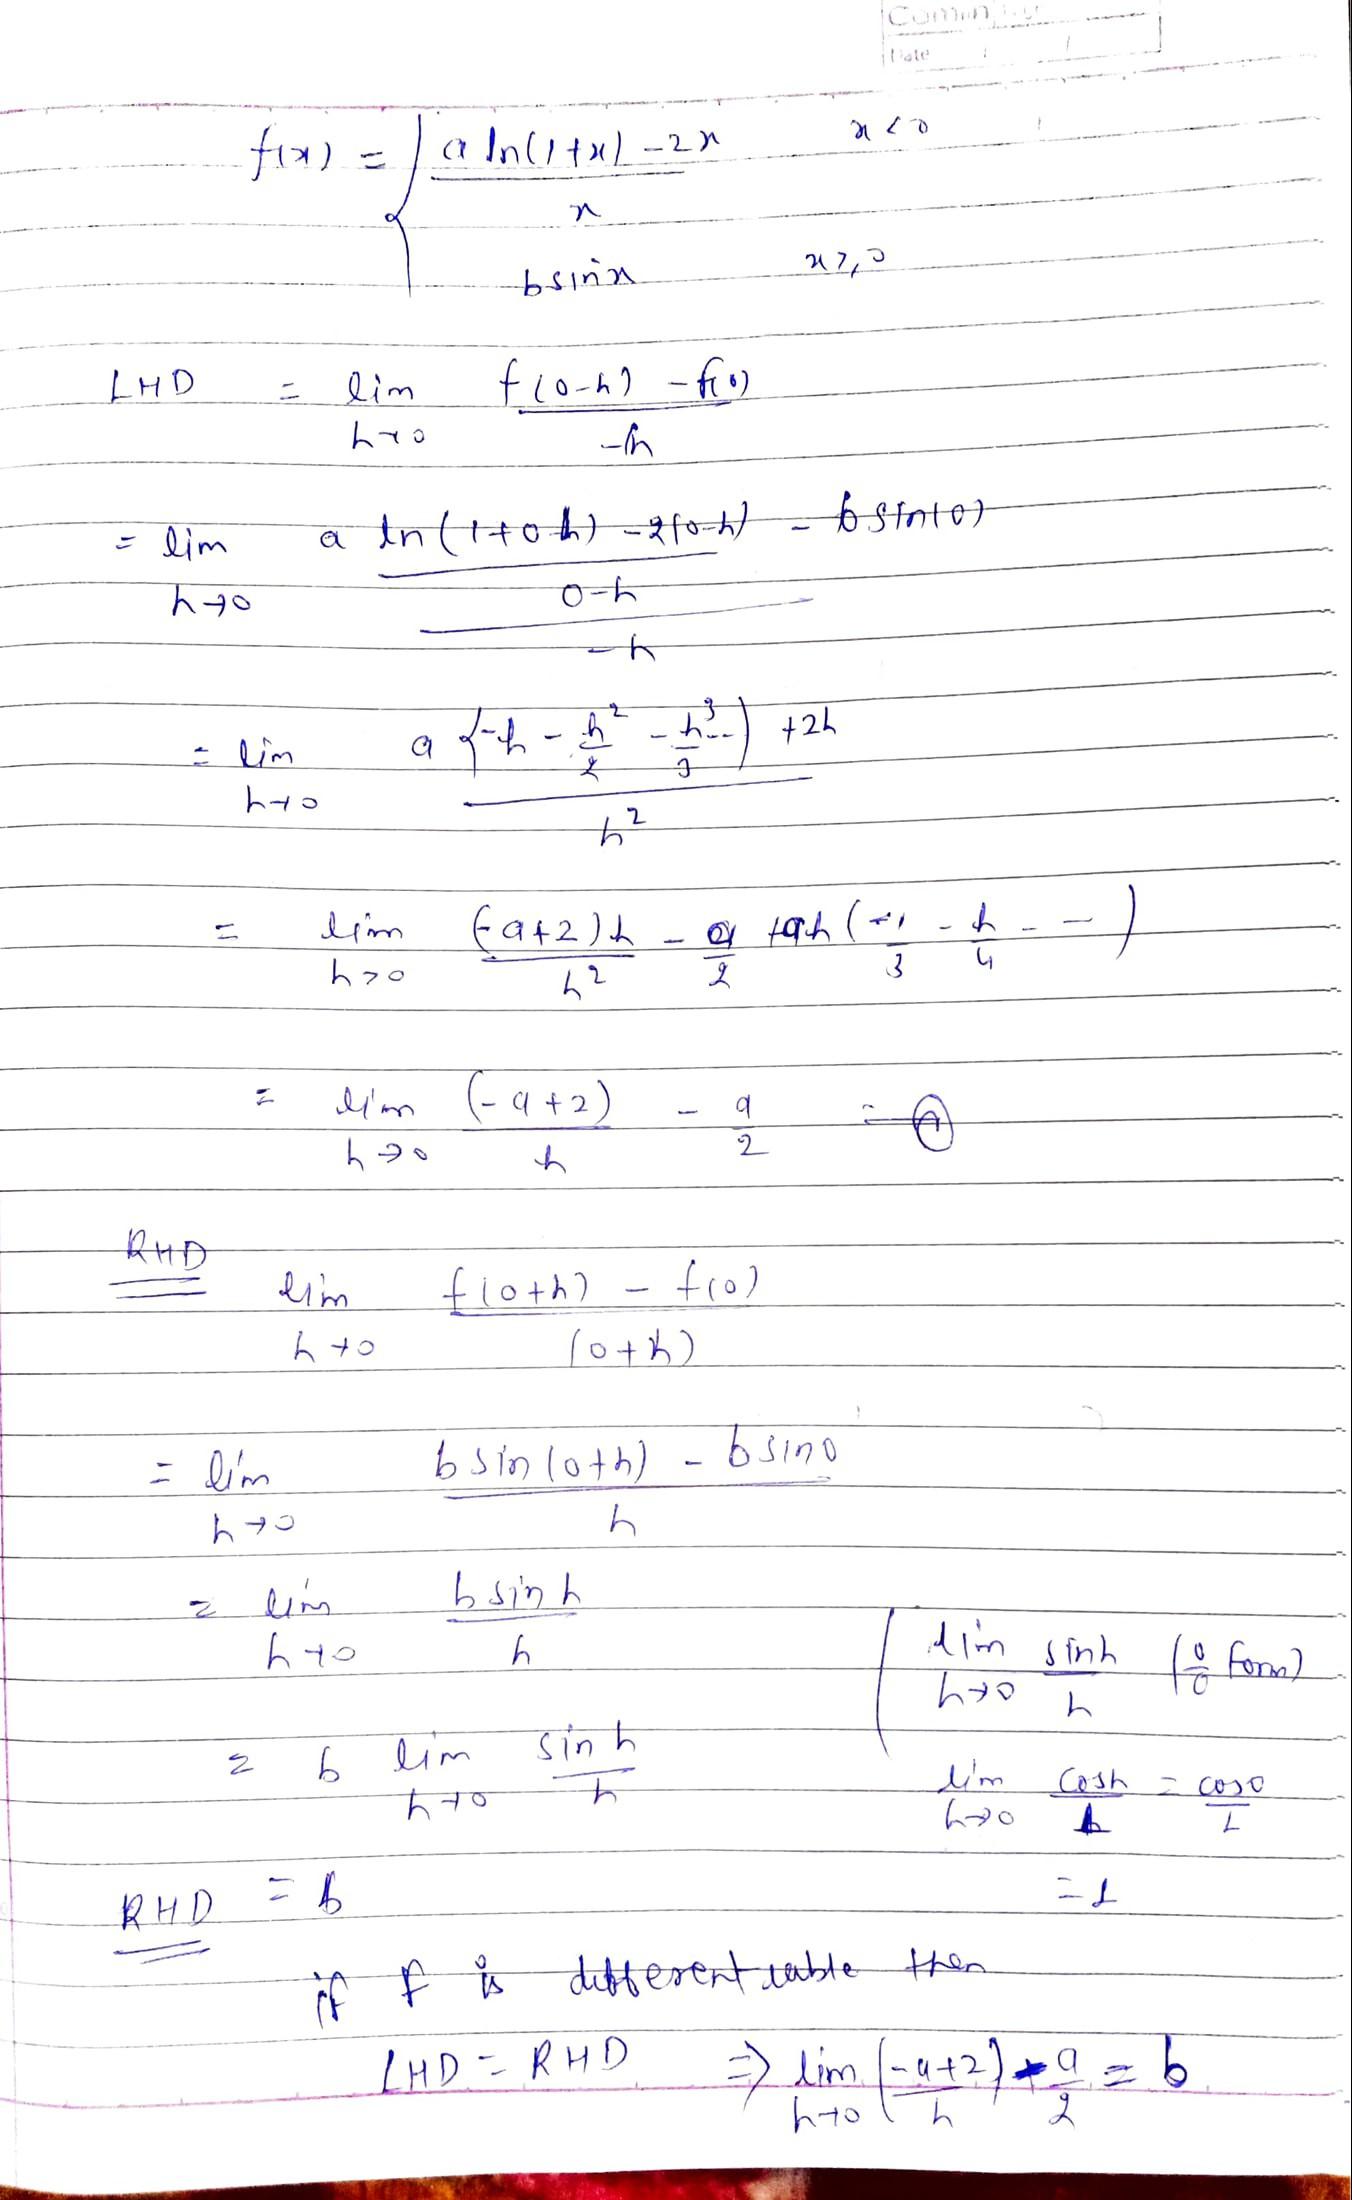 Date / /
f(x) = { (a ln(1+x) - 2x)/x x < 0
b sinx x ≥ 0
LHD = lim h→0 (f(0-h) - f(0))/-h
= lim h→0 ((a ln(1+0-h) - 2(0-h))/(0-h) - b sin(0))/-h
= lim h→0 (a {-h - h²/2 - h³/3 --) + 2h)/h²
= lim h→0 (-a+2)h/h² - a/2 + ah(-1/3 - h/4 - -)
= lim h→0 (-a+2)/h - a/2 =
RHD
lim h→0 (f(0+h) - f(0))/(0+h)
= lim h→0 (b sin(0+h) - b sin0)/h
= lim h→0 (b sinh)/h
lim h→0 sinh/h (0/0 form)
= b lim h→0 sinh/h
lim h→0 cosh/1 = cos0/1
RHD = b
= 1
if f is differentiable then
LHD = RHD ⇒ lim h→0 (-a+2)/h - a/2 = b